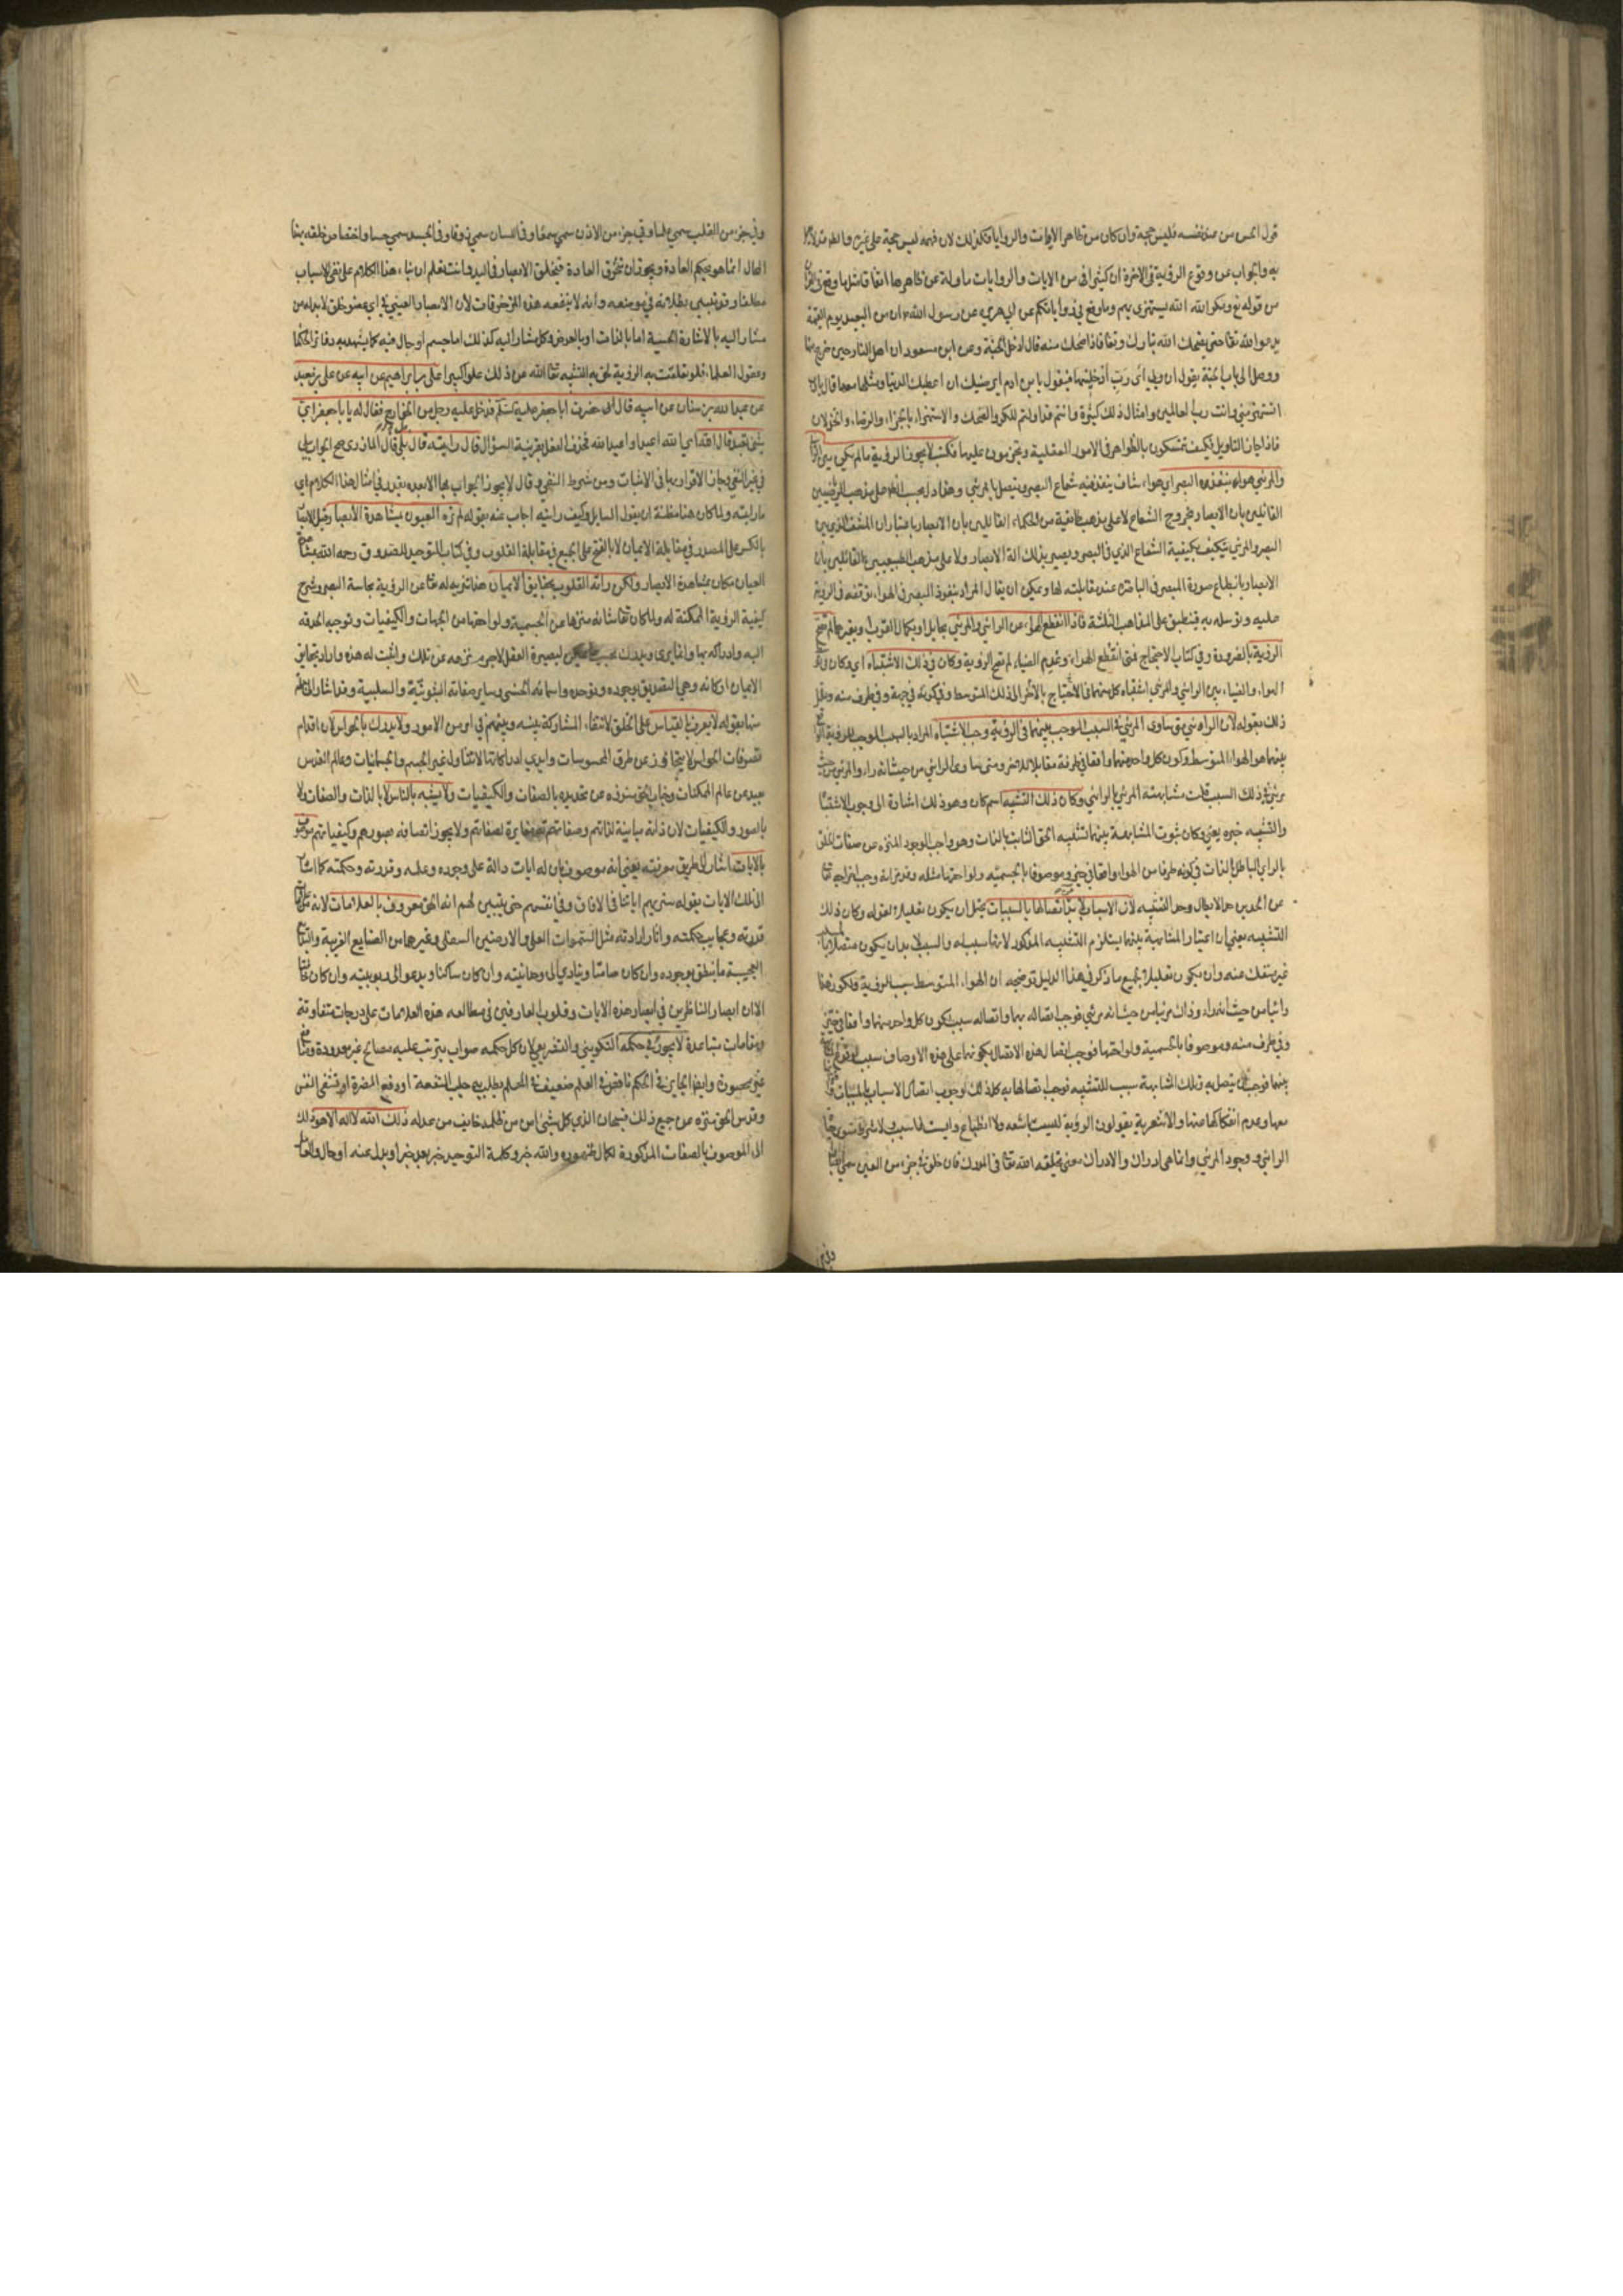 قول الحس من عند نفسه فليس حجة وان كان من ظاهر الايات والروايات فكذلك لان فهمه ليس حجة على غيره
به والجواب عن وقوع الروية فى الاخرة ان كثيرا من الايات والروايات ماولة عن ظاهرها اتفاقا مثلها وقع فى
من قوله تع ومكر الله الله يستهزى بهم وما وقع فى رواياتكم عن ابي هريرة عن رسول الله ان من يوم القيمة
يدعو الله تعا حتى يضحك الله تبارك وتعا فاذا ضحك منه قال ادخل الجنة وعن ابن مسعود ان اهل النار حين
ووصل الى باب الجنة يقول ان ربي اى رب ادخلنيها فيقول يا بن ادم ايرضيك ان اعطيك الدنيا ومثلها معها قال يا رب
اتستهزئ منى وانت رب العالمين وامثال ذلك كثيرة وانتم قد اولتم المكر والضحك والاستهزاء بالجزاء والرضاء والخذلان
فاذا جاز التاويل فكيف تتمسكون بالظواهر فى الامور العقلية وتجزمون عليها فكتب لا يجوز الروية ما لم يكن بين الرائي
والمرئي هواء ينفذه البصر اى هواء شفاف ينفذ فيه شعاع البصر ويتصل بالمرئي وهذا بحسب الظاهر على مذهب الرياضيين
القائلين بان الابصار بخروج الشعاع لا على مذهب طايفة من الحكماء القائلين بان الابصار باعتبار ان المشف الذى بين
البصر والمرئي يتكيف بكيفية الشعاع الذى فى البصر ويصير بذلك الة الابصار ولا على مذهب الطبيعيين القائلين بان
الابصار بانطباع صورة المبصر فى الباصرة عند مقابلته لها ويمكن ان يقال المراد بنفوذ البصر فى الهواء توقفه فى الروية
عليه وتوسله به فينطبق على المذاهب الثلثة فاذا انقطع الهواء عن الرائي والمرئي بحايل او بكمال القرب لم تصح
الروية بالضرورة وفى كتاب الاحتجاج فمتى انقطع الهواء وعدم الضياء لم تصح الروية وكان فى ذلك الاشتباه اى وكان فى
الهواء والضياء بين الرائي والمرئي اشتباه كل منهما فى الاحتياج بالاخر الى ذلك المتوسط وفى كونه فى جهة وفى طرف منه وعلل
ذلك بقوله لان الرائي متى ساوى المرئي فى السبب الموجب بينهما فى الروية وجب الاشتباه المراد بالسبب الموجب للروية
بينهما هو الهواء المتوسط وكون كل واحد منهما واقعا فى طرفه مقابلا للاخر ومتى ساوى الرائي من حيث انه راء والمرئي من حيث
مرئي فى ذلك السبب تمت مشابهته المرئي بالرائي وكان ذلك التشبيه اسم كان وهو ذلك اشارة الى وجوب الاشتباه
والتشبيه خبره يعنى وكان ثبوت المشابهة بينهما تشبيه الحق الثابت بالذات وهو واجب الوجود المنزه عن صفات الخلق
بالرائي الباطل بالذات فى كونه طرفا من الهواء واقعا فى حيز وموصوفا بالجسمية ولواحقها مثله وقد وجب اخراجه تعا
عن الحدين حد الابطال وحد التشبيه لان الاسباب لا بد من اتصالها بالمسببات يحتمل ان يكون تعليلا لقوله وكان ذلك
التشبيه يعنى ان اعتبار المشابهة بينهما يستلزم التشبيه المذكور لانها سبب له والسبب لا بد ان يكون متصلا
غير منفك عنه وان يكون تعليلا لجميع ما ذكر فى هذا الدليل توضيحه ان الهواء المتوسط سبب للروية ولكون هذا
رائيا من حيث انه راء وذاك مرئيا من حيث انه مرئي فوجب اتصاله بهما واتصاله سبب لكون كل واحد منهما واقعا فى حيز
وفى طرف منه وموصوفا بالجسمية ولواحقها فوجب اتصال هذه الاتصال بكونهما على هذه الاوصاف سبب لوقوع
بينهما فوجب ان يتصل به وتلك المشابهة سبب للتشبيه فوجب اتصالها به كل ذلك لوجوب اتصال الاسباب بالمسببات
معها وعدم انفكاكها عنها والاشعرية يقولون الروية ليست باشعه ولا انطباع وليست لها سبب ولا شرط سوى
الرائي ووجود المرئي وانما هى ادراك والادراك معنى يخلقه الله تعا فى المدرك فان خلق فى جزء من العين سمى
وفى
وفى جزء من القلب سمى علما وفى جزء من الاذن سمى سمعا وفى اللسان سمى ذوقا وفى الجسد سمى حسا واختصاص خلقه بهذا
المحال انما هو بحكم العادة ويجوز ان تخرق العادة فيخلق الابصار فى اليد وانت تعلم ان بناء هذا الكلام على نفى الاسباب
مطلقا وقد تبين بطلانه فى موضعه وانه لا ينفعه هذه المزخرفات لان الابصار العيني فى اى عضو خلق لا بد له من
مشار اليه بالاشارة الحسية اما بالذات او بالعرض وكل مشار اليه كذلك اما جسم او حال فيه كما يشهد به دفاتر الحكما
وعقول العلماء فلو تعلقت به الروية لحق به التشبيه تعا الله عن ذلك علوا كبيرا على بن ابراهيم عن ابيه عن على بن معبد
عن عبد الله بن سنان عن ابيه قال حضرت ابا جعفر عليه السلم فدخل عليه رجل من الخوارج فقال له يا با جعفر اى
شئ تعبد قال الله تعا اى الله اعبد او اعبد الله فحذف الفعل بقرينة السؤال قال رايته قال بلى قال المازرى صح الجواب ببلى
فى غير النفى وجاز الاقرار بها فى الاثبات ومن شروط النفى وقال لا يجوز الجواب بها الا بعده يقدر فى امثال هذا الكلام اى
ما رايته ولما كان هنا مظنة ان يقول السايل وكيف رايته اجاب عنه بقوله لم تره العيون بمشاهدة الابصار وقيل الابصار
بالكسر على المصدر فى مقابلة الايمان لا بالفتح على الجمع فى مقابلة القلوب وفى كتاب التوحيد للصدوق رحمه الله بمشاهدة
العيان مكان بمشاهدة الابصار ولكن راته القلوب بحقايق الايمان هذا تنزيه له تعا عن الروية بحاسة البصر وشرح
كيفية الروية الممكنة له ولما كان تعا شانه منزها عن الجسمية ولواحقها من الجهات والكيفيات وتوجيه الحدقه
اليه وادراكه بها وانما يرى ويدرك بحسب ما يمكن لبصيرة العقل لاجرم نزهه عن تلك واثبت له هذه واراد بحقايق
الايمان اركانه وهى التصديق بوجوده وتوحده واسمائه الحسنى وساير صفاته الثبوتية والسلبية وقد اشار الى
منها بقوله لا يعرف بالقياس على الخلق لانتفاء المشاركة بينه وبينهم فى امر من الامور ولا يدرك بالحواس لان اقدام
تصرفات الحواس لا يتجاوز عن طرق المحسوسات وايدى ادراكاتها لا تتناول غير الجسم والجسمانيات وعالم القدس
بعيد عن عالم الممكنات وجناب الحق منزه عن تحديده بالصفات والكيفيات ولا يشبه بالناس لا بالذات والصفات ولا
بالصور والكيفيات لان ذاته مباينة لذاتهم وصفاته مغايرة لصفاتهم ولا يجوز اتصافه بصورهم وكيفياتهم موصوف
بالايات اشار الى طريق معرفته يعنى انه موصوف بان له ايات دالة على وجوده وعلمه وقدرته وحكمته كما اشار
الى تلك الايات بقوله سنريهم اياتنا فى الافاق وفى انفسهم حتى يتبين لهم انه الحق معروف بالعلامات لانه
قدرته وعجايب حكمته واثار ارادته مثل السموات العلى والارضين السفلى وغيرها من الصنايع الغريبة
العجيبة ما ينطق بوجوده وان كان صامتا وينادى الى وحدانيته وان كان ساكنا ويدعو الى ربوبيته وان كان
الا ان ابصار الناظرين فى ابصار هذه الايات وقلوب العارفين فى مطالعه هذه العلامات على درجات متفاوتة
ومقامات متباعدة لا يجور فى حكمه التكوينى والتشريعى لان كل حكمه صواب يترتب عليه مصالح غير معدودة
غير محصورة وايضا الجاير فى الحكم ناقص فى العلم ضعيف فى الحلم يطلب به جلب المنفعة او دفع المضرة او تشفى النفس
وقدس الحق منزه عن جميع ذلك فسبحان الذى كل شئ امن من ظلمه خايف من عدله ذلك الله لا اله الا هو ذلك
الى الموصوف بالصفات المذكورة لكمال ظهوره والله خبر وكلمة التوحيد خبر بعد خبر او بدل عنه او حال